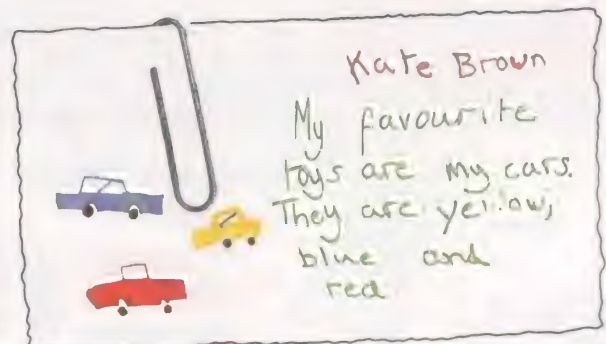 Kate Brown
My favourite
toys are my cars.
They are yellow,
blue and
red